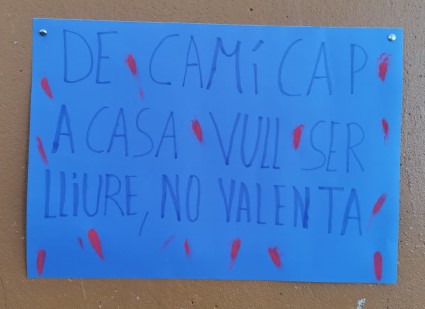 DE CAMÍ CAP
A CASA VULL SER
LLIURE, NO VALENTA